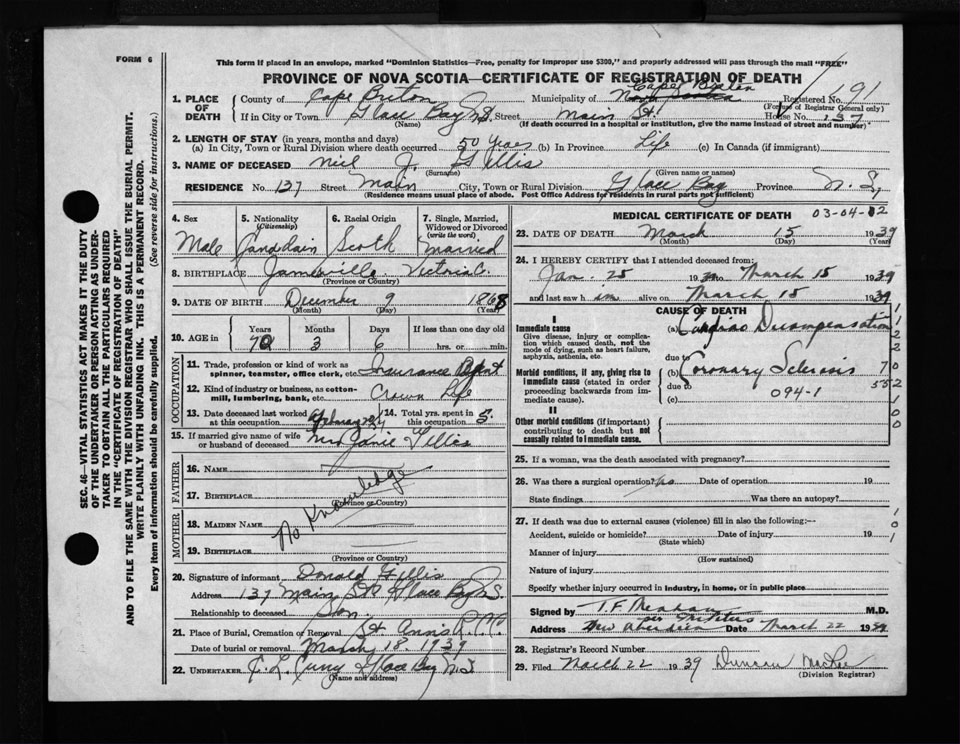 FORM 6
This form if placed in an envelope, marked "Dominion Statistics—Free, penalty for improper use $300," and properly addressed will pass through the mail "FREE"
PROVINCE OF NOVA SCOTIA—CERTIFICATE OF REGISTRATION OF DEATH
1. PLACE OF DEATH
County of Cape Breton Municipality of Cape Breton Registered No. 91
(For use of Registrar General only)
If in City or Town Glace Bay N.S. Street Main St. House No. 137
(Name) (If death occurred in a hospital or institution, give the name instead of street and number)
2. LENGTH OF STAY (in years, months and days)
(a) In City, Town or Rural Division where death occurred 50 Years (b) In Province Life (c) In Canada (if immigrant)
3. NAME OF DECEASED Niel J. Gillis
(Surname) (Given name or names)
RESIDENCE No. 137 Street Main City, Town or Rural Division Glace Bay Province N.S,
(Residence means usual place of abode. Post Office Address for residents in rural parts not sufficient)
4. Sex Male
5. Nationality (Citizenship) Canadain
6. Racial Origin Scoth
7. Single, Married, Widowed or Divorced (write the word) Married
8. BIRTHPLACE Victoria C.
(Province or Country)
9. DATE OF BIRTH December 9 1868
(Month) (Day) (Year)
10. AGE in Years 70 Months 3 Days 6 If less than one day old
hrs. or min.
OCCUPATION
11. Trade, profession or kind of work as spinner, teamster, office clerk, etc. Insurance Agent
12. Kind of industry or business, as cotton-mill, lumbering, bank, etc. Crown Life
13. Date deceased last worked at this occupation
14. Total yrs. spent in this occupation 5.
15. If married give name of wife or husband of deceased Mrs Janie Gillis
FATHER
16. NAME
17. BIRTHPLACE
(Province or Country)
No Knowledge
MOTHER
18. MAIDEN NAME
19. BIRTHPLACE
(Province or Country)
20. Signature of informant Donald Gillis
Address 137 Main St Glace Bay N.S.
Relationship to deceased Son.
21. Place of Burial, Cremation or Removal St Ann's
Date of burial or removal March 18. 1939
22. UNDERTAKER C. L. Curry Glace Bay N.S
(Name and address)
MEDICAL CERTIFICATE OF DEATH 03-04-02
23. DATE OF DEATH March 15 1939
(Month) (Day) (Year)
24. I HEREBY CERTIFY that I attended deceased from:
Jan. 25 1939 to March 15 1939
and last saw h im alive on March 15 1939
CAUSE OF DEATH
I
Immediate cause
Give disease, injury or complication which caused death, not the mode of dying, such as heart failure, asphyxia, asthenia, etc.
(a) Cardiac Decompensation
due to
Morbid conditions, if any, giving rise to immediate cause (stated in order proceeding backwards from immediate cause).
(b) Coronary Sclerosis
due to
(c) 094-1
II
Other morbid conditions (if important) contributing to death but not causally related to immediate cause.
25. If a woman, was the death associated with pregnancy?
26. Was there a surgical operation? No Date of operation 19
State findings Was there an autopsy?
27. If death was due to external causes (violence) fill in also the following:—
Accident, suicide or homicide? Date of injury 19
(State which)
Manner of injury
(How sustained)
Nature of injury
Specify whether injury occurred in industry, in home, or in public place
Signed by T.F. Meahan M.D.
Address New Aberdeen Date March 22 1939
28. Registrar's Record Number
29. Filed March 22 1939 Duncan MacRee
(Division Registrar)
SEC. 46—VITAL STATISTICS ACT MAKES IT THE DUTY
OF THE UNDERTAKER OR PERSON ACTING AS UNDER-
TAKER TO OBTAIN ALL THE PARTICULARS REQUIRED
IN THE "CERTIFICATE OF REGISTRATION OF DEATH"
AND TO FILE THE SAME WITH THE DIVISION REGISTRAR WHO SHALL ISSUE THE BURIAL PERMIT.
WRITE PLAINLY WITH UNFADING INK. THIS IS A PERMANENT RECORD.
Every item of information should be carefully supplied. (See reverse side for instructions.)